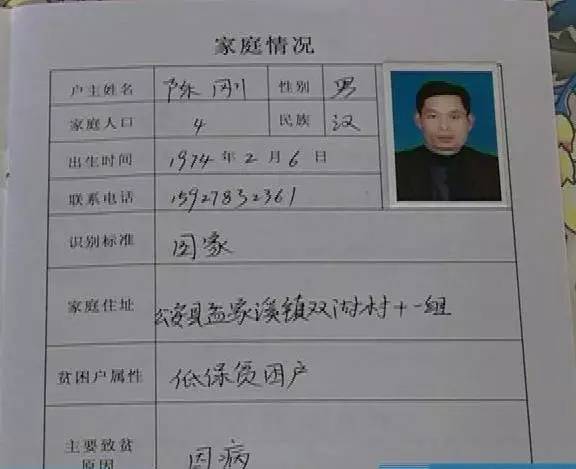 家庭情况
户主姓名 陈刚 性别 男
家庭人口 4 民族 汉
出生时间 1974年2月6日
联系电话 15927832361
识别标准 国家
家庭住址 公安县孟家溪镇双湖村十一组
贫困户属性 低保贫困户
主要致贫
原因 因病